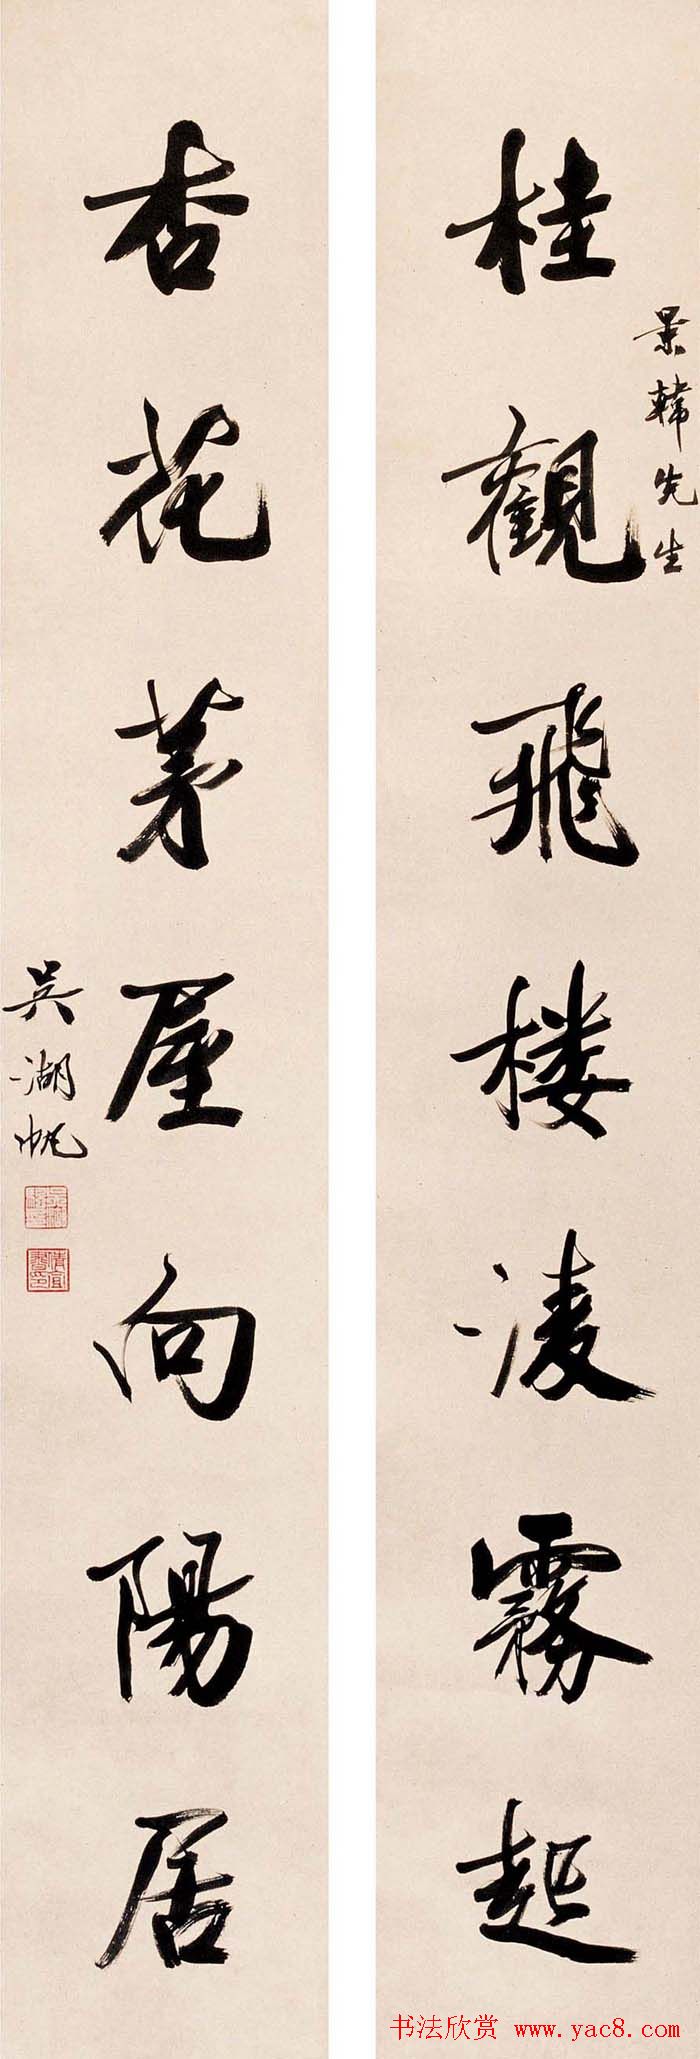 景韓先生
桂觀飛楼凌霧起
杏花茅屋向陽居
吳湖帆
书法欣赏 www.yac8.com